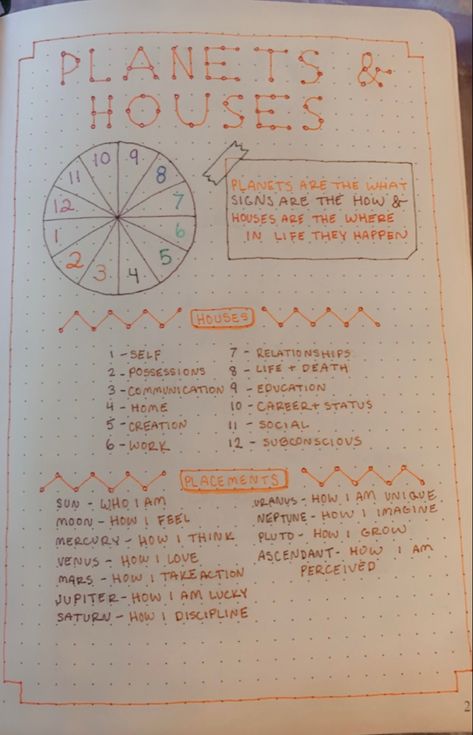 PLANETS &
HOUSES
10
9
11
8
12
7
1
6
2
5
3
4
PLANETS ARE THE WHAT
SIGNS ARE THE HOW &
HOUSES ARE THE WHERE
IN LIFE THEY HAPPEN
HOUSES
1 - SELF
2 - POSSESSIONS
3 - COMMUNICATION
4 - HOME
5 - CREATION
6 - WORK
7 - RELATIONSHIPS
8 - LIFE + DEATH
9 - EDUCATION
10 - CAREER + STATUS
11 - SOCIAL
12 - SUBCONSCIOUS
PLACEMENTS
SUN - WHO I AM
MOON - HOW I FEEL
MERCURY - HOW I THINK
VENUS - HOW I LOVE
MARS - HOW I TAKE ACTION
JUPITER - HOW I AM LUCKY
SATURN - HOW I DISCIPLINE
URANUS - HOW I AM UNIQUE
NEPTUNE - HOW I IMAGINE
PLUTO - HOW I GROW
ASCENDANT - HOW I AM
PERCEIVED
2